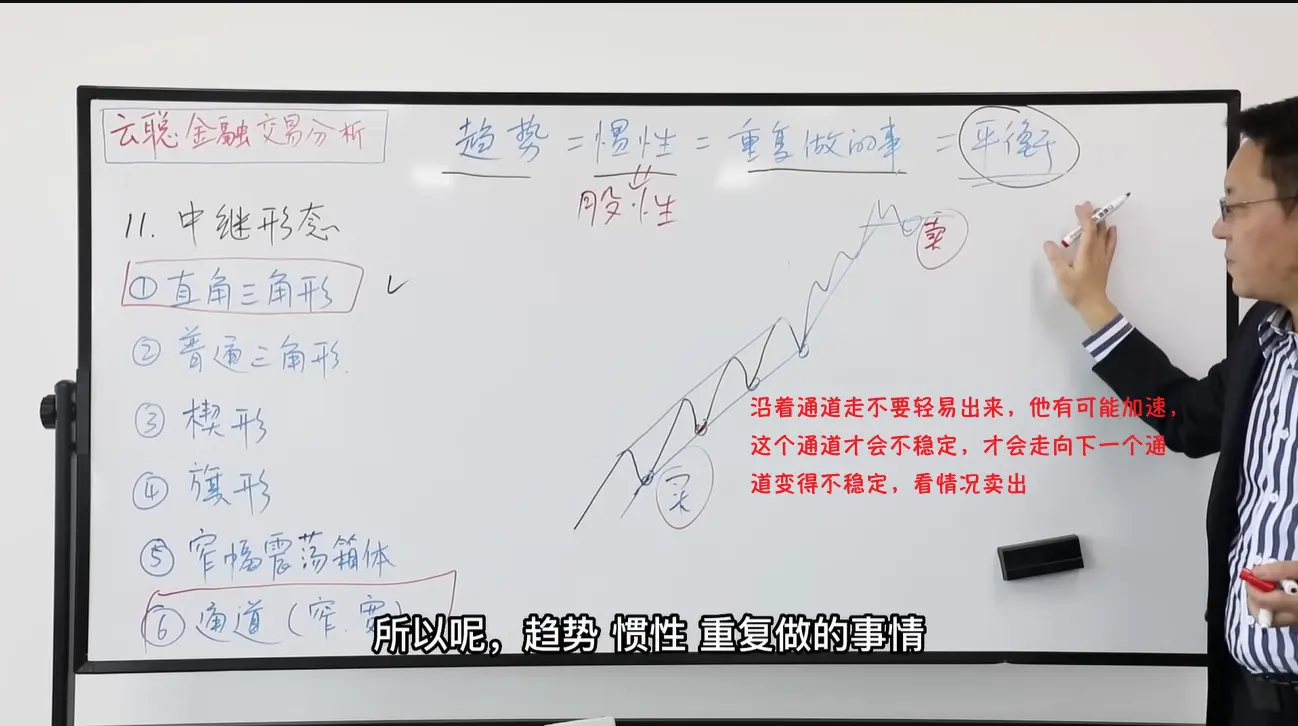 云聪金融交易分析
趋势=惯性=重复做的事=平衡
股性
11.中继形态
①直角三角形 ✓
②普通三角形.
③楔形
④旗形
⑤窄幅震荡箱体
⑥通道(窄.宽)
卖
买
沿着通道走不要轻易出来，他有可能加速，
这个通道才会不稳定，才会走向下一个通
道变得不稳定，看情况卖出
所以呢，趋势 惯性 重复做的事情